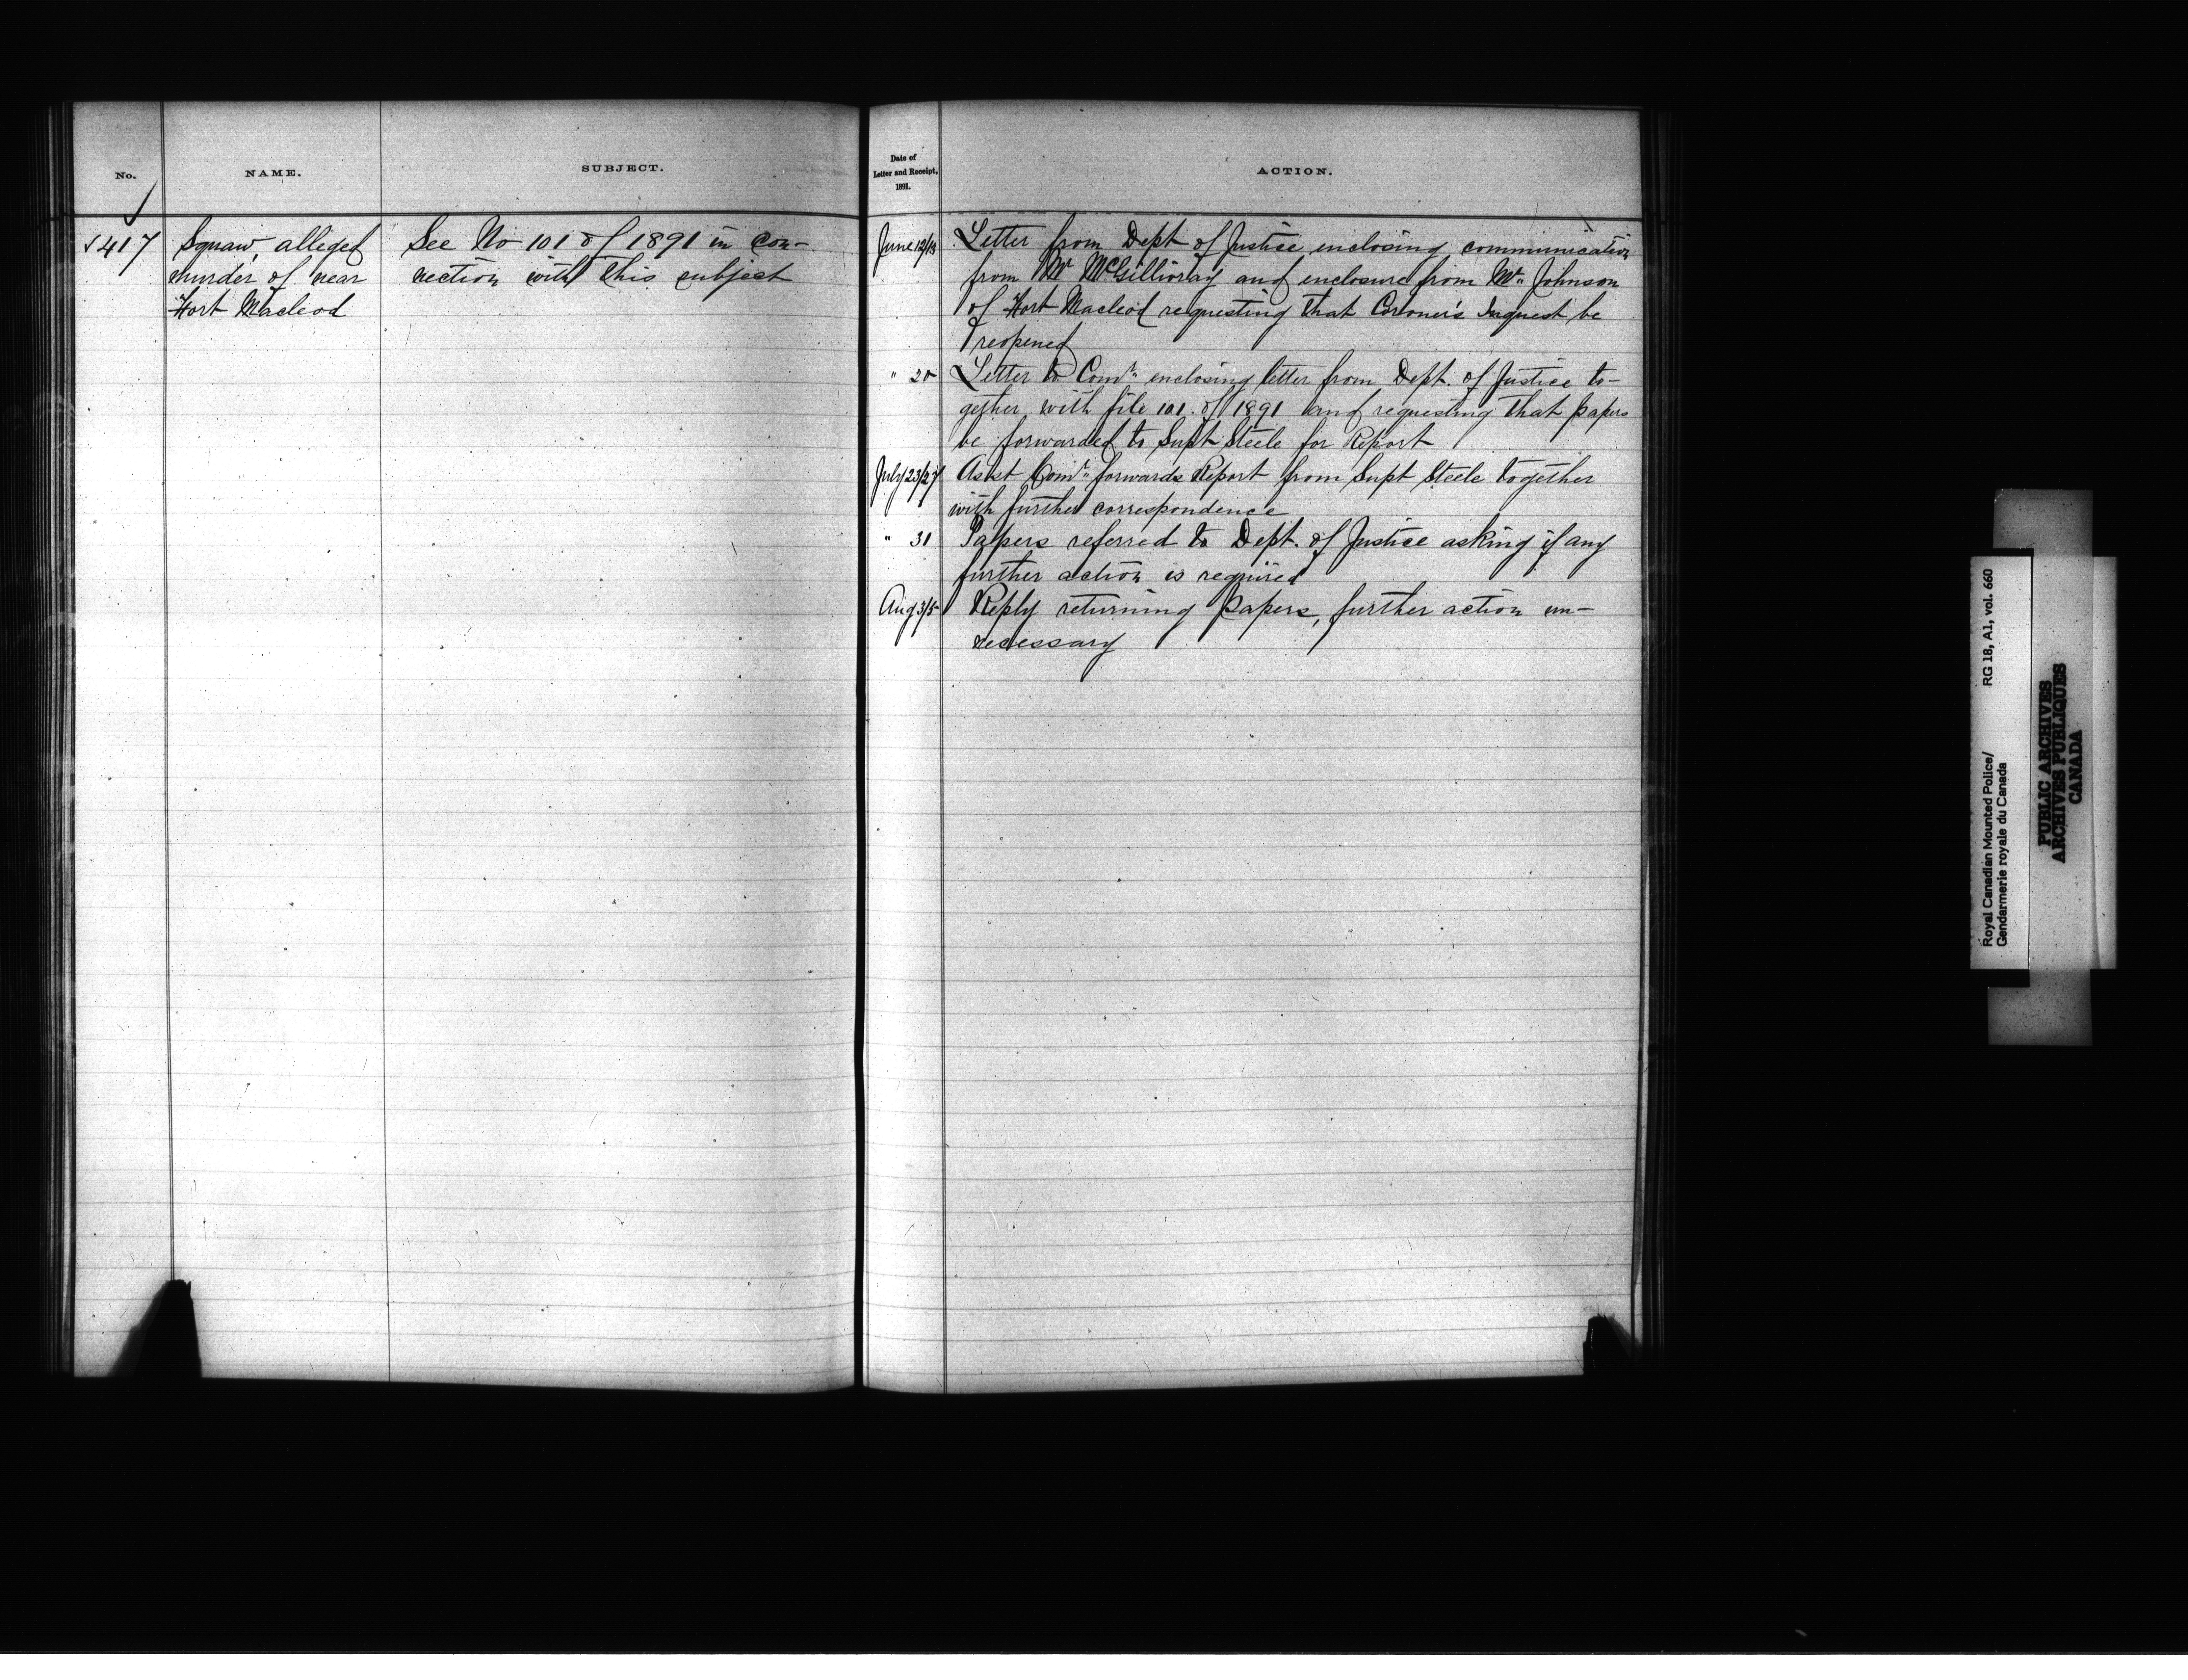 No.
NAME.
SUBJECT.
✓417
Squaw, alleged
murder of near
Fort Macleod
See No 101 of 1891 in con-
nection with this subject
Date of
Letter and Receipt,
1891.
ACTION.
June 12/13
Letter from Dept of Justice enclosing communication
from Mr McGillivray and enclosure from Mr. Johnson
of Fort Macleod requesting that Coroner's Inquest be
reopened
" 20
Letter to Comr. enclosing letter from Dept. of Justice to-
gether with file 101 of 1891 and requesting that papers
be forwarded to Supt Steele for Report
July 23/27
Asst Comr. forwards Report from Supt Steele together
with further correspondence
" 31
Papers referred to Dept. of Justice asking if any
further action is required
Aug 3/5
Reply returning papers, further action un-
necessary
Royal Canadian Mounted Police/
Gendarmerie royale du Canada
RG 18, A1, vol. 660
PUBLIC ARCHIVES
ARCHIVES PUBLIQUES
CANADA